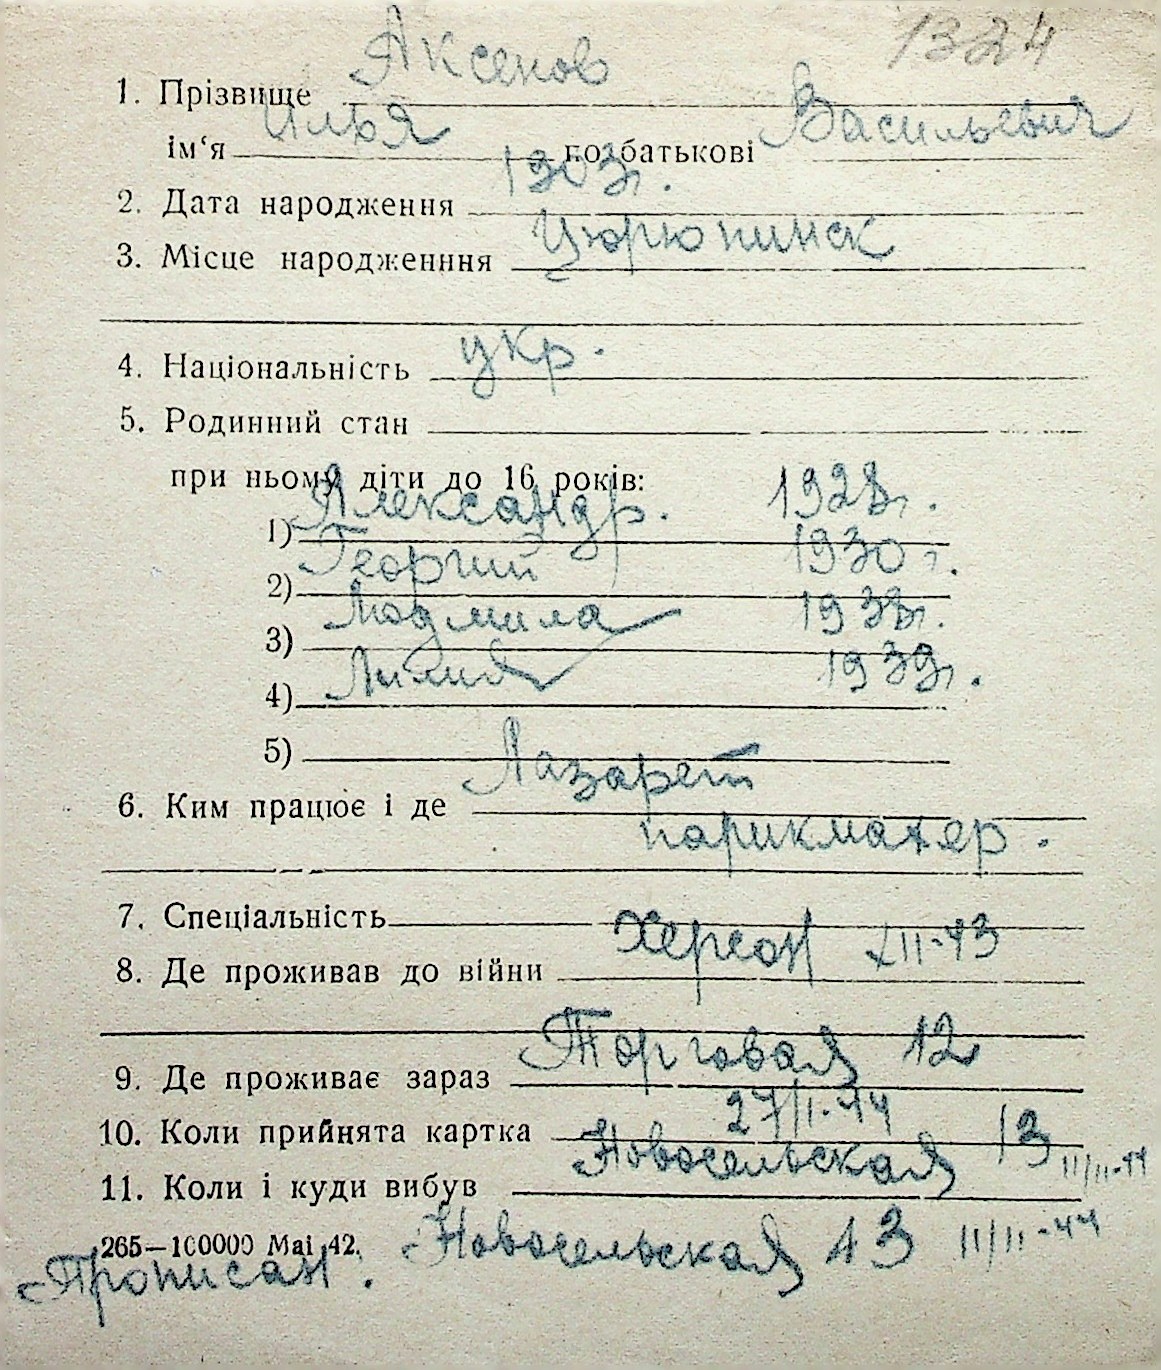 1324
Аксенов
1. Прізвище
Илья Васильевич
ім‘я по батькові
1903г.
2. Дата народження
Цюрюпинск
3. Місце народженння
укр.
4. Національність
5. Родинний стан
при ньому діти до 16 років:
1) Александр. 1928г.
2) Георгий 1930г.
3) Людмила 1938г.
4) Лилия 1939г.
5)
Лазарет
6. Ким працює і де
парикмахер.
7. Спеціальність
Херсон XII-43
8. Де проживав до війни
Торговая 12
9. Де проживає зараз
27/II-44
10. Коли прийнята картка
Новосельская 13 11/II-44
11. Коли і куди вибув
265—100000 Mai 42. Новосельская 13 11/II-44
Прописан.